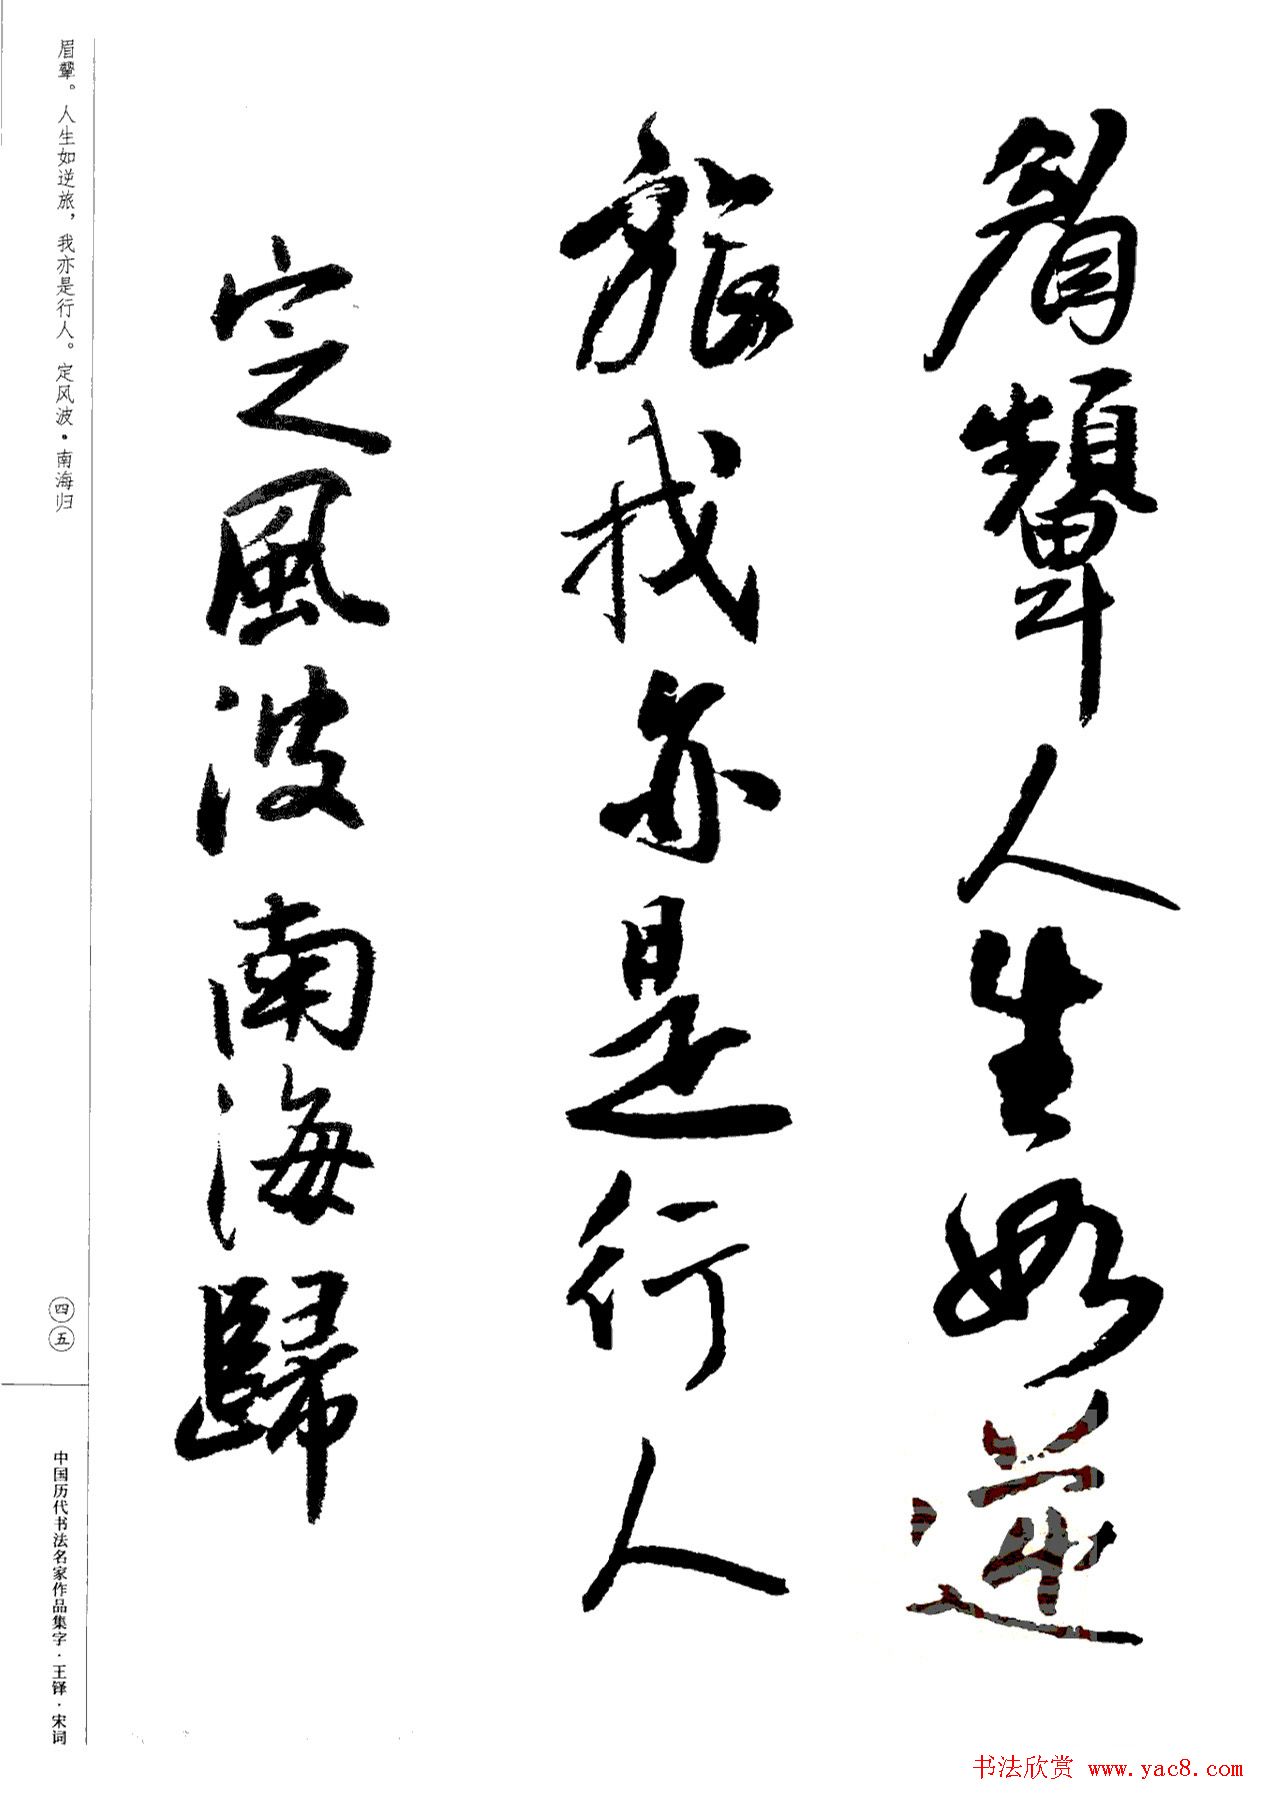 眉颦人生如逆
旅我亦是行人
定風波南海歸
眉颦。人生如逆旅，我亦是行人。定风波·南海归
四五
中国历代书法名家作品集字·王铎·宋词
书法欣赏 www.yac8.com